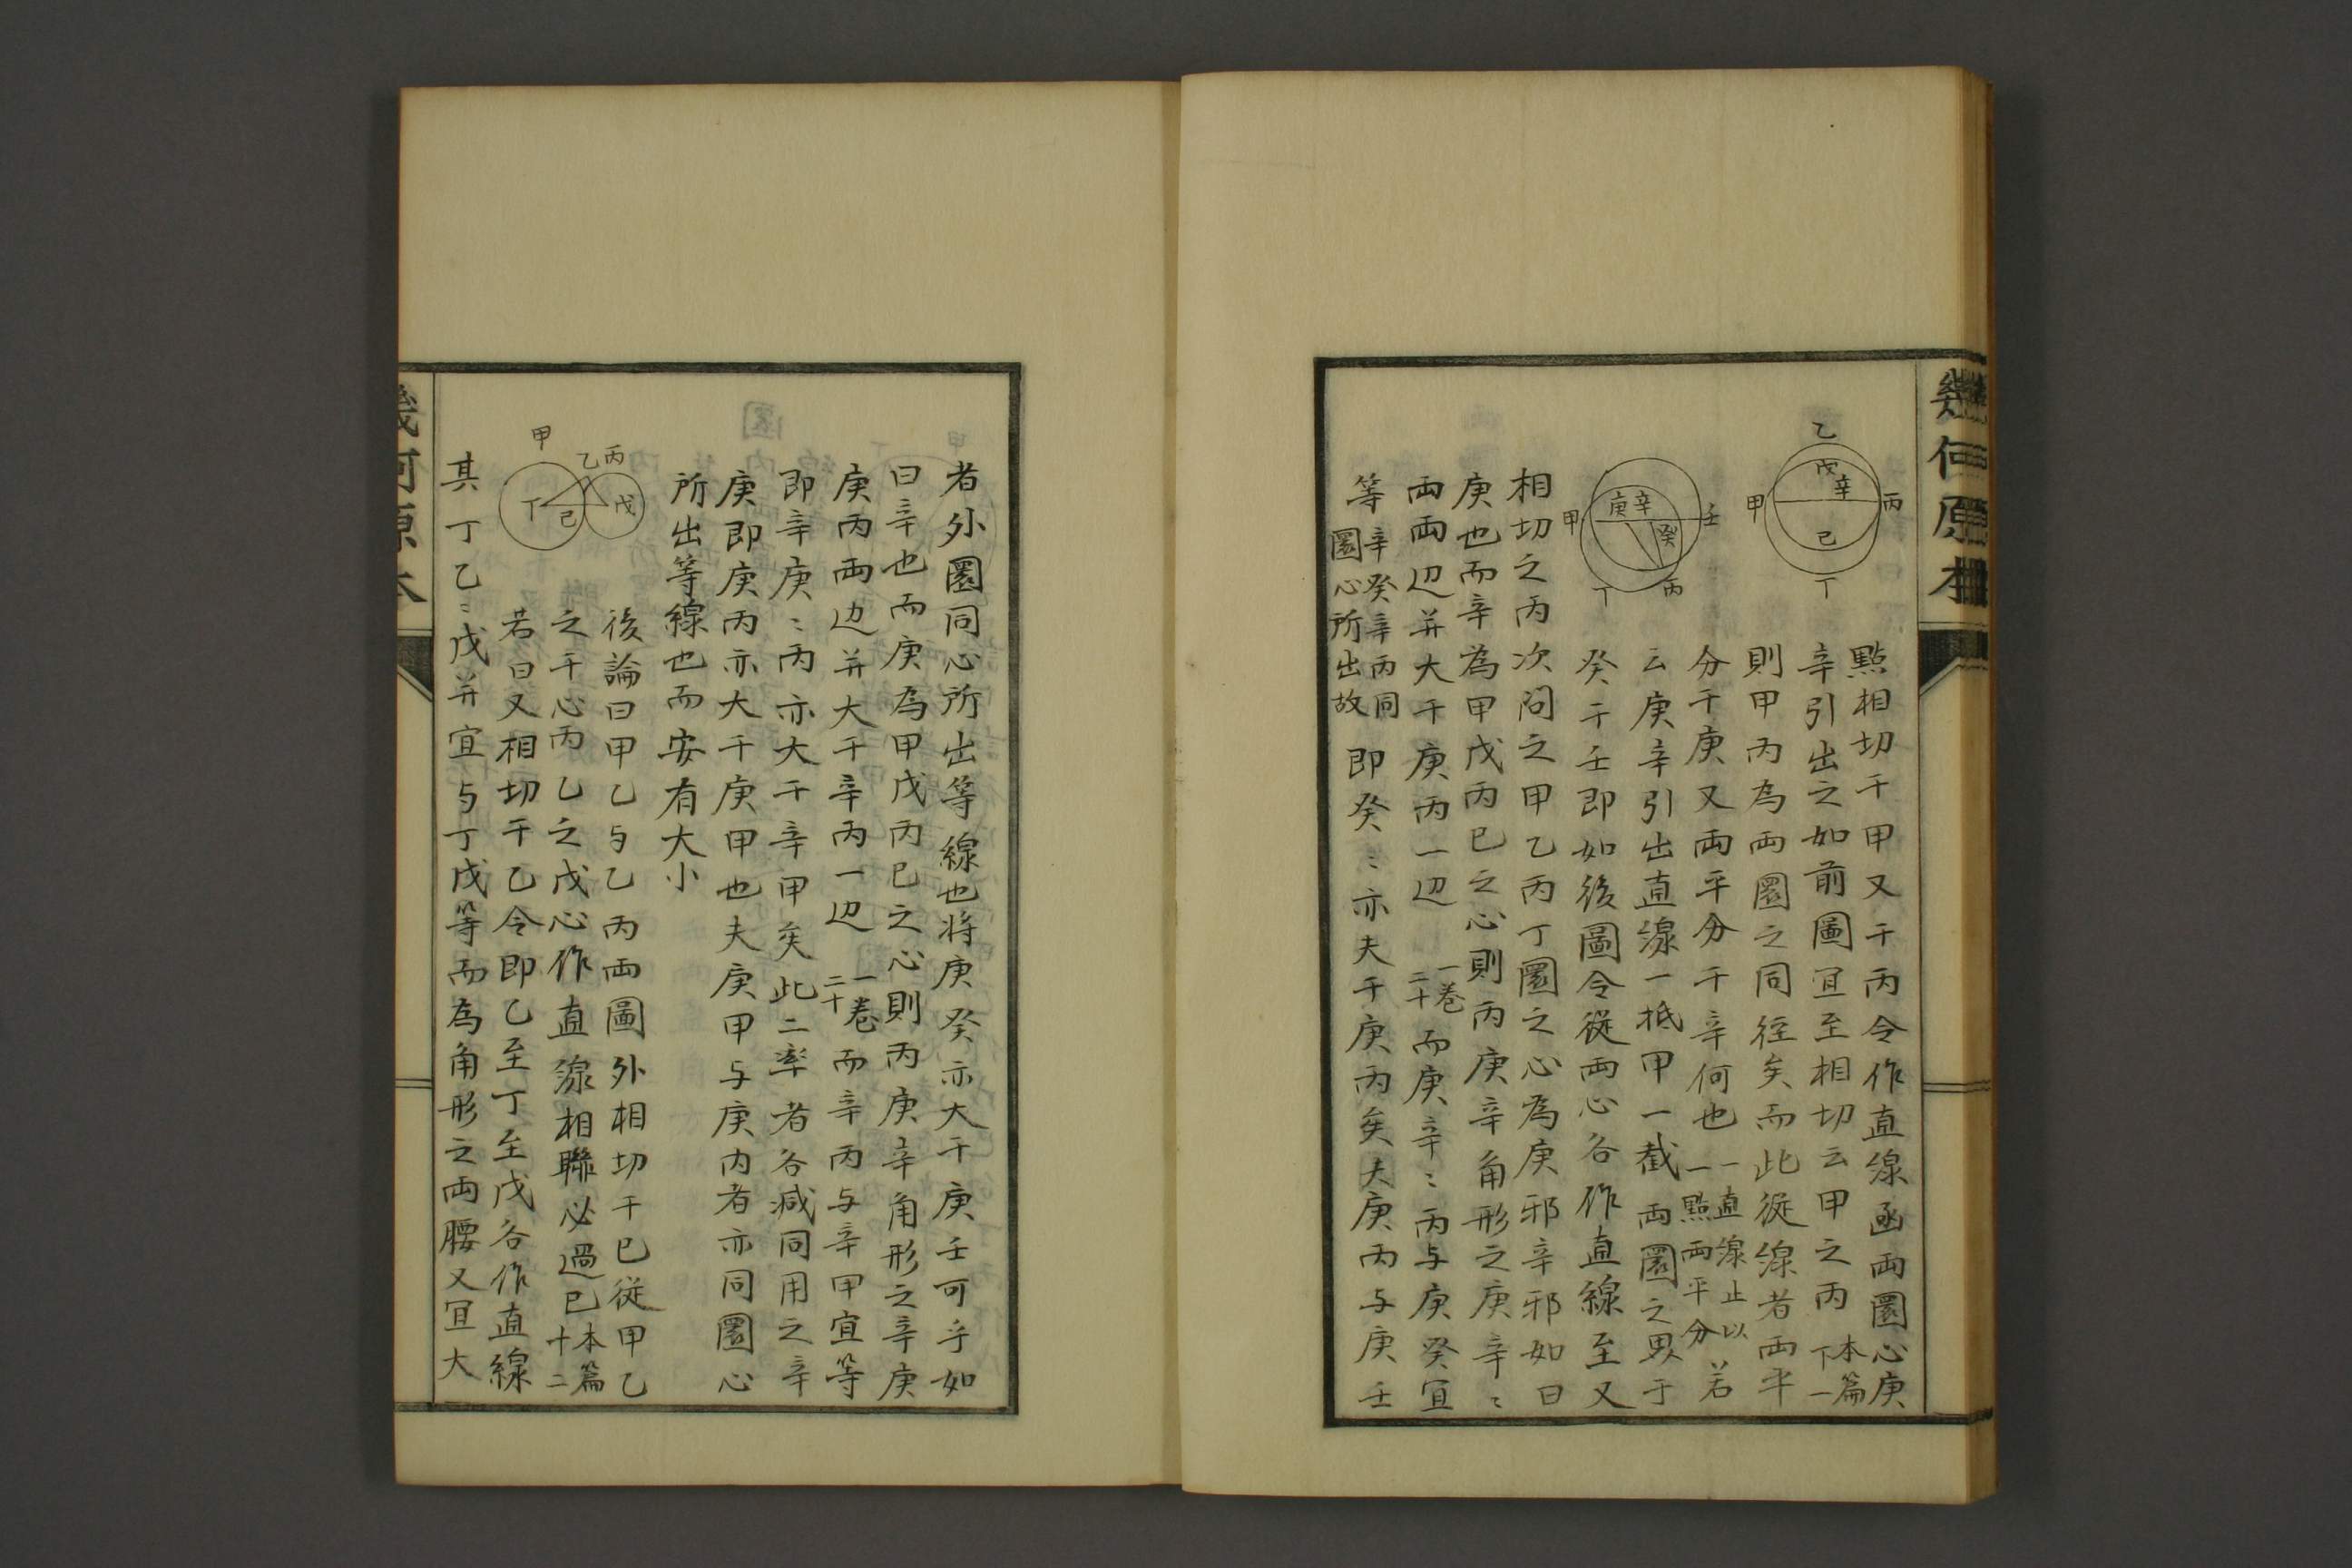 幾何原本
乙
戊
辛
甲
丙
己
丁
點相切于甲又于丙令作直線函兩圜心庚
辛引出之如前圖宜至相切云甲之丙本篇
下一
則甲丙為兩圜之同徑矣而此從線者兩平
分于庚又兩平分于辛何也一直線止以
一點兩平分若
云庚辛引出直線一抵甲一截兩圜之界于
癸于壬即如後圖令從兩心各作直線至又
庚辛
甲
壬
癸
丁
丙
相切之丙次问之甲乙丙丁圜之心為庚邪辛邪如曰
庚也而辛為甲戊丙已之心則丙庚辛角形之庚辛〻
兩兩边并大于庚丙一边一卷
二十而庚辛〻丙与庚癸宜
等辛癸辛丙同
圜心所出故即癸〻亦夫于庚丙矣夫庚丙与庚壬
者外圜同心所出等線也将庚癸亦大于庚壬可乎如
曰辛也而庚為甲戊丙已之心則丙庚辛角形之辛庚
庚丙兩边并大于辛丙一边一卷
二十而辛丙与辛甲宜等
即辛庚〻丙亦大于辛甲矣此二率者各减同用之辛
庚即庚丙亦大于庚甲也夫庚甲与庚内者亦同圜心
所出等線也而安有大小
後論曰甲乙与乙丙兩圖外相切于巳従甲乙
之于心丙乙之戊心作直線相聯必過巳本篇
十二
若曰又相切于乙令即乙至丁至戊各作直線
甲
乙
丙
丁
己
戊
其丁乙〻戊并宜与丁戊等而為角形之兩腰又宜大
幾何原本